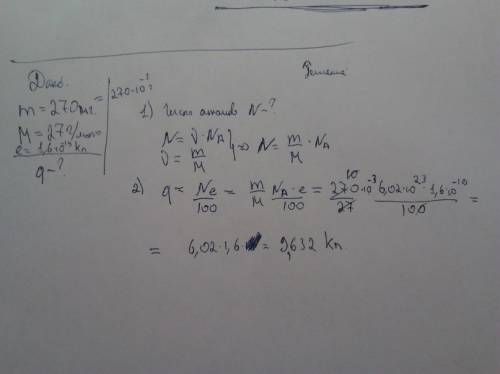 Дано:
Решение
m = 270 мг. = 270·10⁻³ г
M = 27 г/моль
e = 1,6·10⁻¹⁹ Кл
q - ?
1) число атомов N - ?
N = ν·N_A
ν = m/M
=> N = m/M · N_A
2) q = Ne/100 = m/M N_A·e/100 = 270·10⁻³/27 10 6,02·10²³·1,6·10⁻¹⁹/100 =
= 6,02·1,6 = 9,632 Кл.